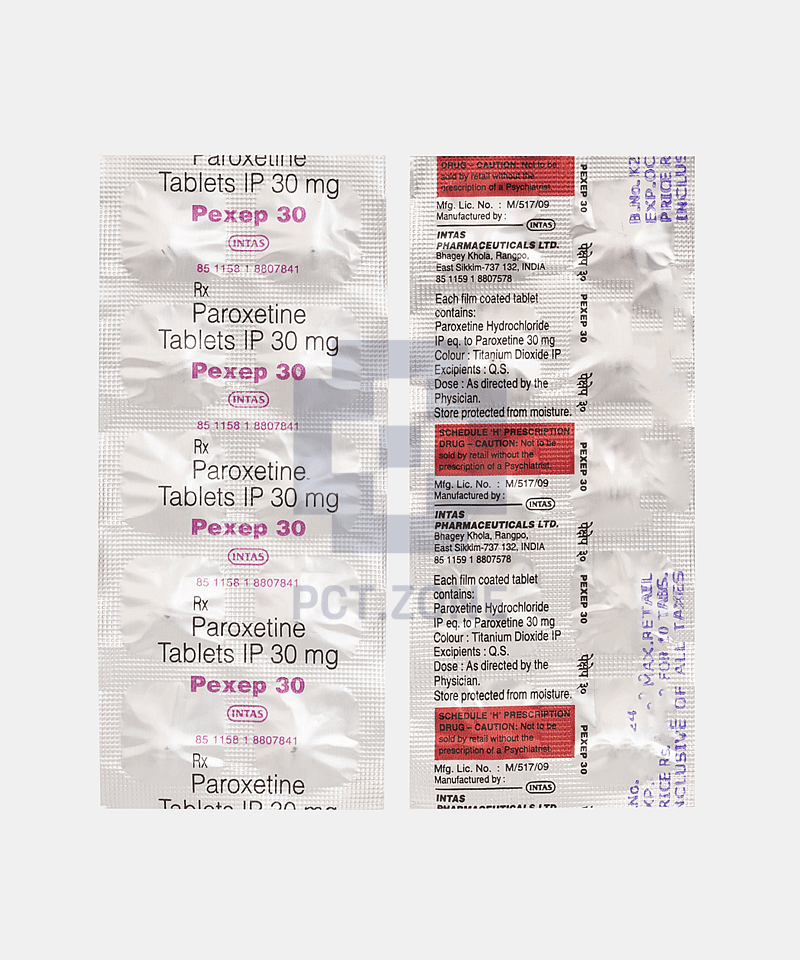 Paroxetine
Tablets IP 30 mg
Pexep 30
INTAS
85 1158 1 8807841
Rx
Paroxetine
Tablets IP 30 mg
Pexep 30
INTAS
85 1158 1 8807841
Rx
Paroxetine
Tablets IP 30 mg
Pexep 30
INTAS
85 1158 1 8807841
Rx
Paroxetine
Tablets IP 30 mg
Pexep 30
INTAS
85 1158 1 8807841
Rx
Paroxetine
Tablets IP 30 mg
DRUG – CAUTION: Not to be
sold by retail without the
prescription of a Psychiatrist.
Mfg. Lic. No. : M/517/09
Manufactured by :
INTAS
INTAS
PHARMACEUTICALS LTD.
Bhagey Khola, Rangpo,
East Sikkim-737 132, INDIA
85 1159 1 8807578
Each film coated tablet
contains:
Paroxetine Hydrochloride
IP eq. to Paroxetine 30 mg
Colour : Titanium Dioxide IP
Excipients : Q.S.
Dose : As directed by the
Physician.
Store protected from moisture.
SCHEDULE 'H' PRESCRIPTION
DRUG – CAUTION: Not to be
sold by retail without the
prescription of a Psychiatrist.
Mfg. Lic. No. : M/517/09
Manufactured by :
INTAS
INTAS
PHARMACEUTICALS LTD.
Bhagey Khola, Rangpo,
East Sikkim-737 132, INDIA
85 1159 1 8807578
Each film coated tablet
contains:
Paroxetine Hydrochloride
IP eq. to Paroxetine 30 mg
Colour : Titanium Dioxide IP
Excipients : Q.S.
Dose : As directed by the
Physician.
Store protected from moisture.
SCHEDULE 'H' PRESCRIPTION
DRUG – CAUTION: Not to be
sold by retail without the
prescription of a Psychiatrist.
Mfg. Lic. No. : M/517/09
Manufactured by :
INTAS
INTAS
PHARMACEUTICALS LTD.
PEXEP 30
पेक्सेप ३०
PEXEP 30
पेक्सेप ३०
PEXEP 30
पेक्सेप ३०
PEXEP 30
पेक्सेप ३०
PEXEP 30
B.No. K2
EXP.OC
PRICE R
INCLUS
No.
XP.
MAX.RETAIL
RICE RS. FOR 10 TABS.
NCLUSIVE OF ALL TAXES
PCT.ZONE